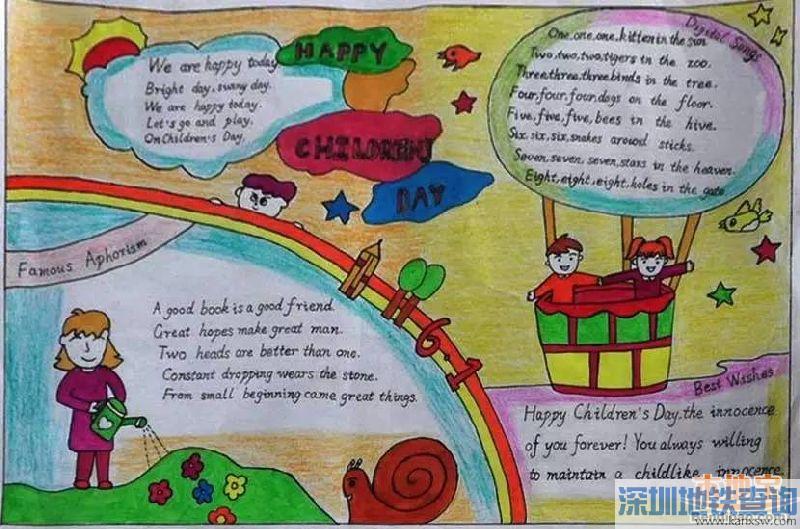 We are happy today
Bright day, sunny day.
We are happy today.
Let's go and play.
On Children's Day.
HAPPY
CHILDREN'S
DAY
Digital Songs
One, one, one, kitten in the sun
Two, two, two, tigers in the zoo.
Three, three, three, birds in the tree.
Four, four, four, dogs on the floor.
Five, five, five, bees in the hive.
Six, six, six, snakes around sticks.
Seven, seven, seven, stars in the heaven.
Eight, eight, eight, holes in the gate
Famous Aphorism
A good book is a good friend.
Great hopes make great man.
Two heads are better than one.
Constant dropping wears the stone.
From small beginning came great things.
6-1
Best Wishes
Happy Children's Day, the innocence
of you forever! You always willing
to maintain a childlike innocence
本地宝
深圳地铁查询
www.kanxsw.com